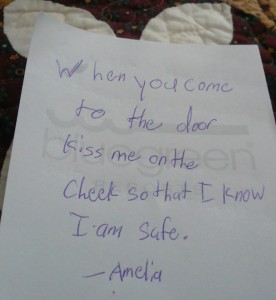 When you come
to the door
kiss me on the
Cheek so that I know
I am safe.
—Amelia
bluegreen